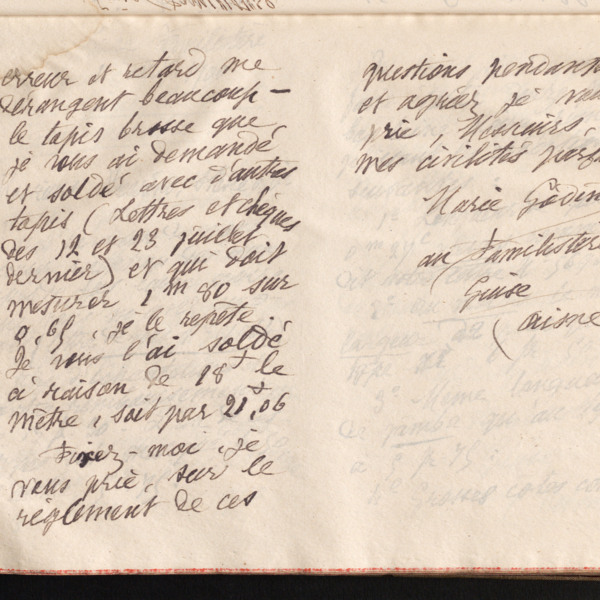 erreur et retard me
dérangent beaucoup —
le tapis brosse que
je vous ai demandé
et soldé avec d'autres
tapis (Lettres et chèques
des 12 et 23 juillet
dernier) et qui doit
mesurer 1m80 sur
0,65, je le repète.
Je vous l'ai soldé
à raison de 18f le
mètre, soit par 21f,06
Fixez-moi, je
vous prie, sur le
règlement de ces
questions pendant
et agréez je vous
prie, Messieurs,
mes civilités parf
Marie Godin
au Familistère
Guise
(aisne